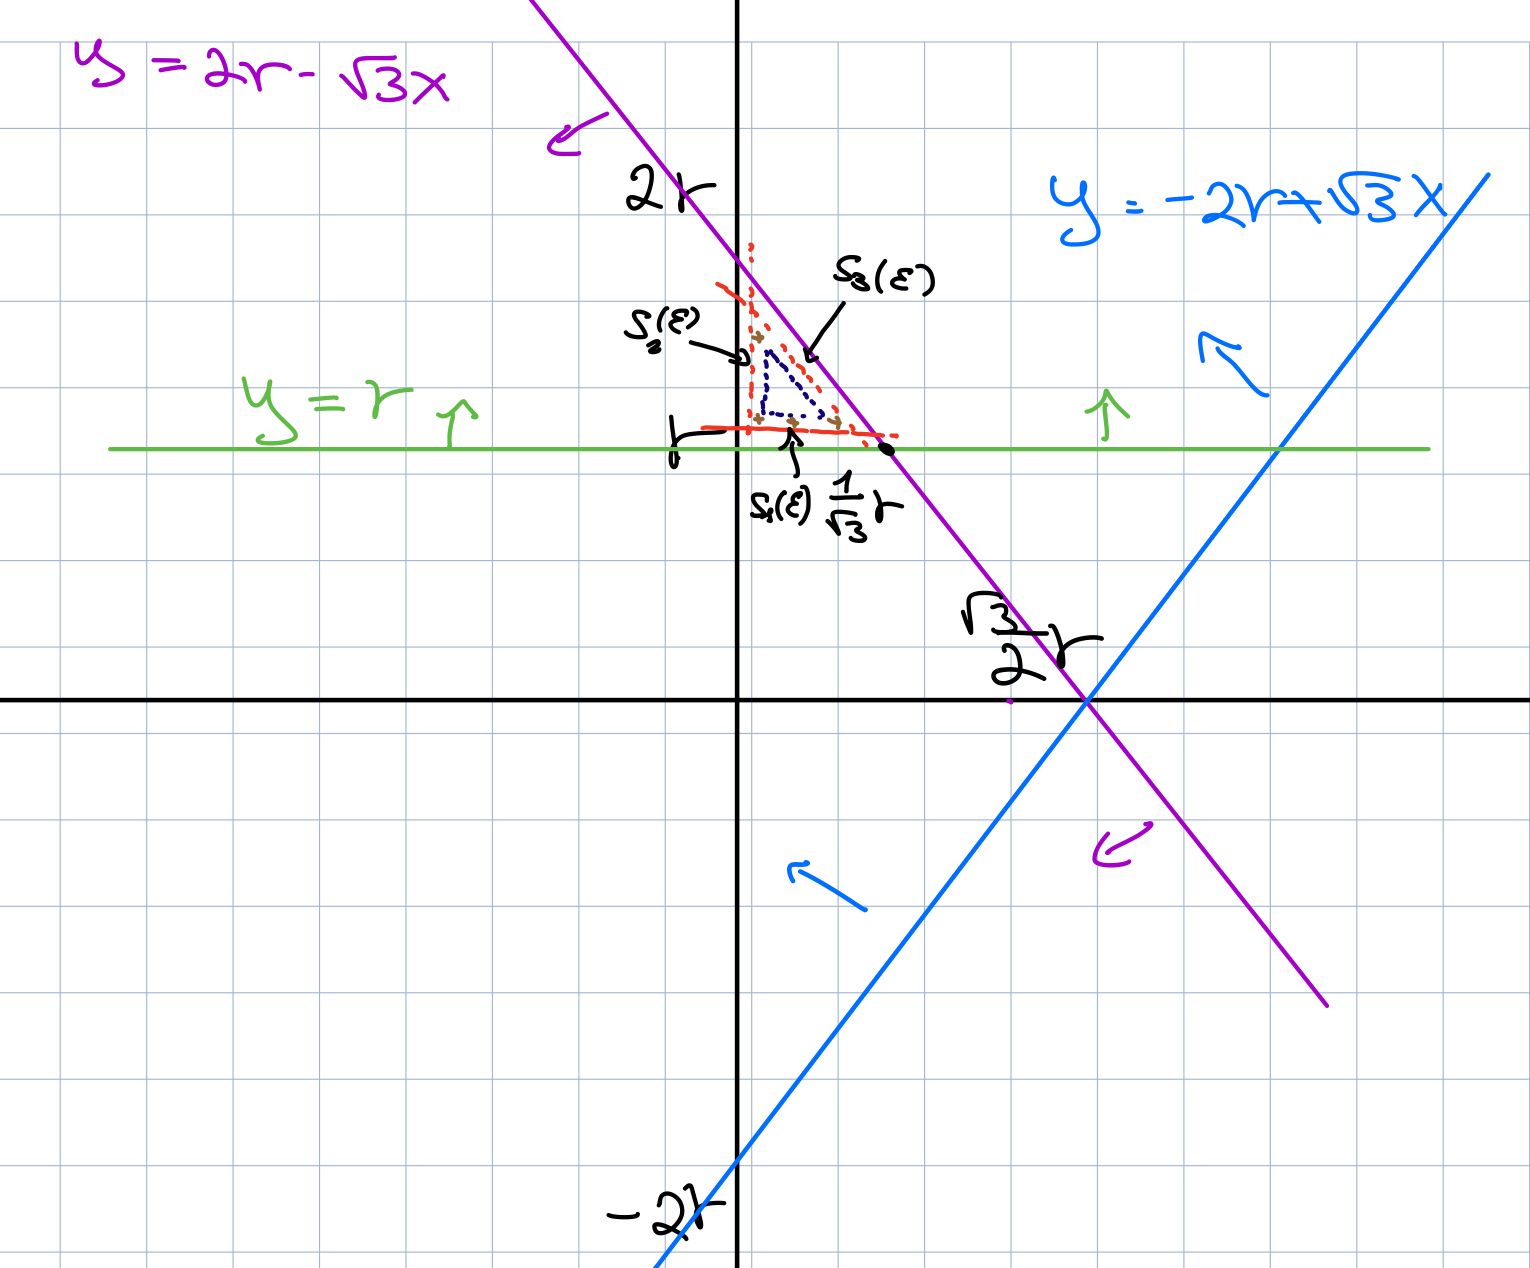 y = 2r - √3x
2r
y = -2r + √3x
S₃(ε)
S₂(ε)
y = r
r
S₁(ε)
1/√3 r
√3/2 r
-2r